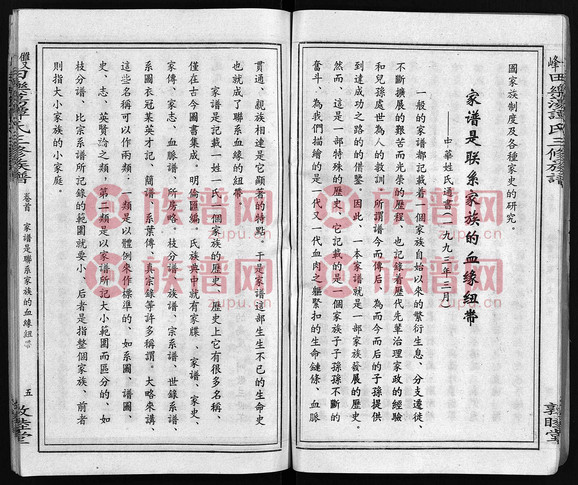 國家族制度及各種家史的研究。
家譜是联系家族的血缘纽带
——中華姓氏通書（一九九二年二月）
一般的家譜都記載着一個家族自始以來的繁衍生息、分支遷徙、
不斷擴展的艱苦而光榮的歷程，也記錄着歷代先輩治理家政的經驗
和兒孫處世為人的教訓，所謂譜今而傳后，為而今而后的子孫提供
到達成功之路的的借鑒。因此，一本家譜就是一部家族發展的歷史。
然而，這是一部特殊的歷史，它記載的是一個家族子子孫孫不斷的
奮斗，為我們描繪的是一代又一代血肉之軀緊扣的生命鏈條、血脈
貫通、親族相連是它顯著的特點。于是家譜這部生生不已的生命史
也就成了聯系血緣的纽帶。
家譜是記載一姓一氏一個家族的歷史，歷史上它有很多名稱，
僅在古今圖書集成，明倫匯編，氏族典中就有家牒、家譜、家史、
家傳、家志、血脈譜、所房略，枝分譜、族譜、宗系譜、世錄系譜、
系圖衣冠某英才記、簡譜、系葉傳、真宗錄等許多稱謂。大略來講，
這些名稱可以作兩類：一類是以體例來作標準的，如系圖、譜圖、
史、志、英賢論之類。第二類是以家譜所記大小範圍而區分的，如
枝分譜、比宗系譜所記錄的範圍就要小，后者是指整個家族、前者
則指大小家族的小家庭。
卷首 家譜是聯系家族的血緣纽帶
五
敦睦堂
敦睦堂
族譜网
zupu.cn
族譜网
zupu.cn